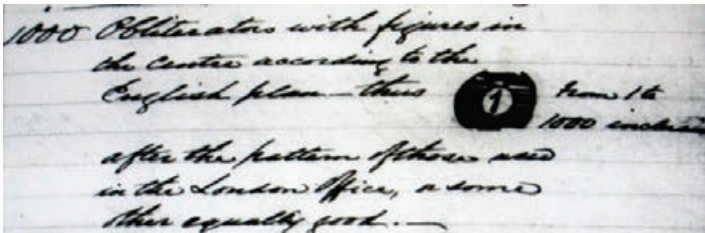 1000 Obliterators with figures in
the centre according to the
English plan — thus 1 From 1 to
1000 inclusive
after the pattern of those used
in the London Office, or some
other equally good. —